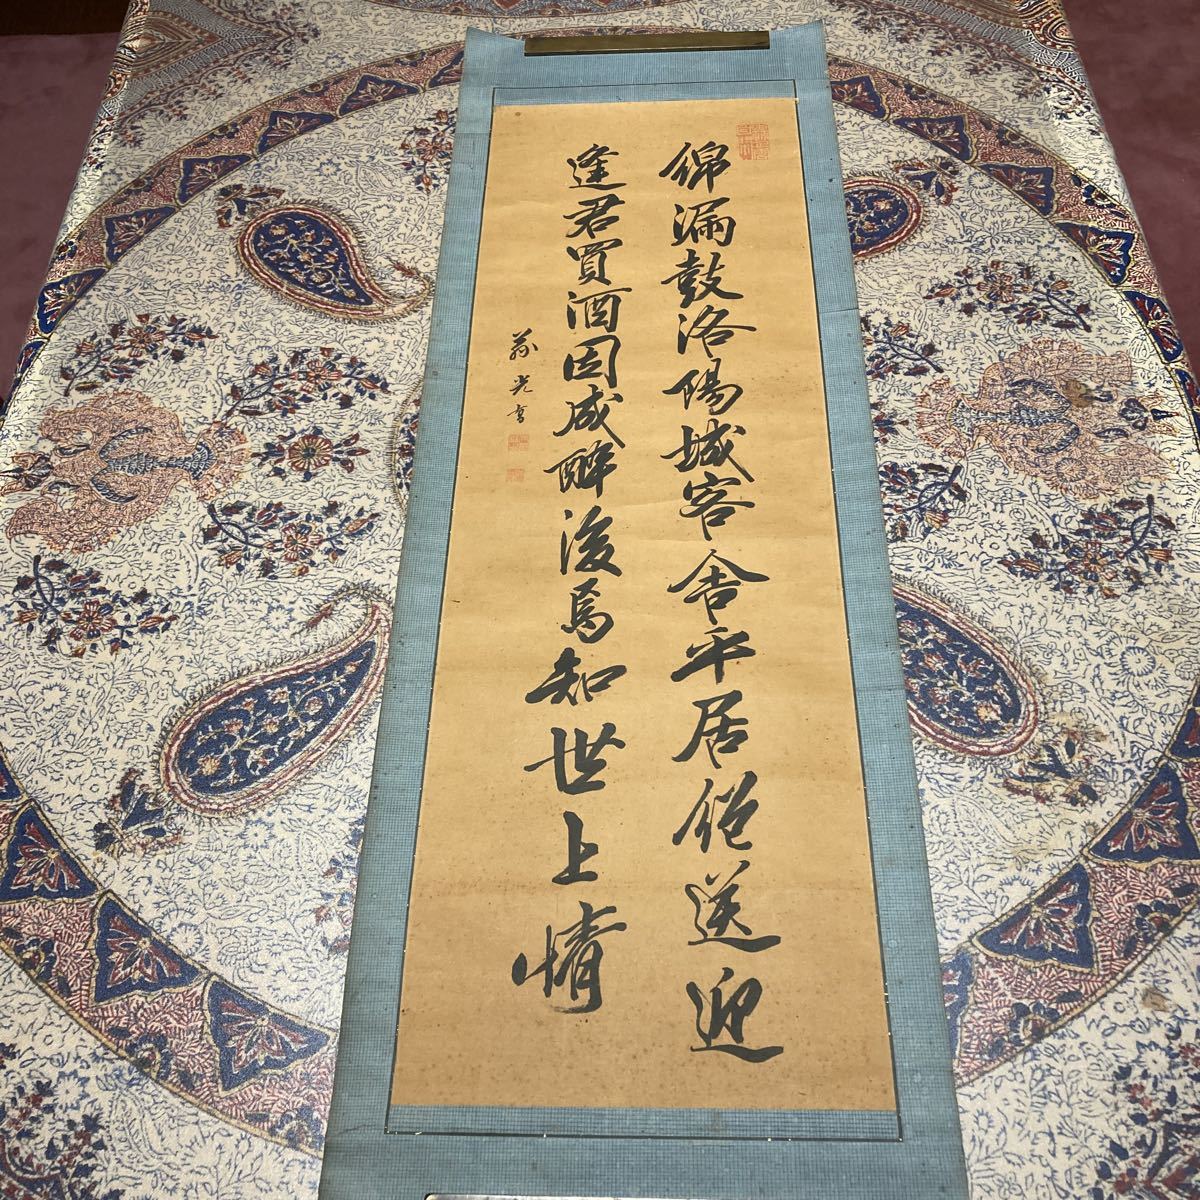 綿漏鼓洛陽城客舍平居絶送迎
逢君買酒因成醉後焉知世上情
光